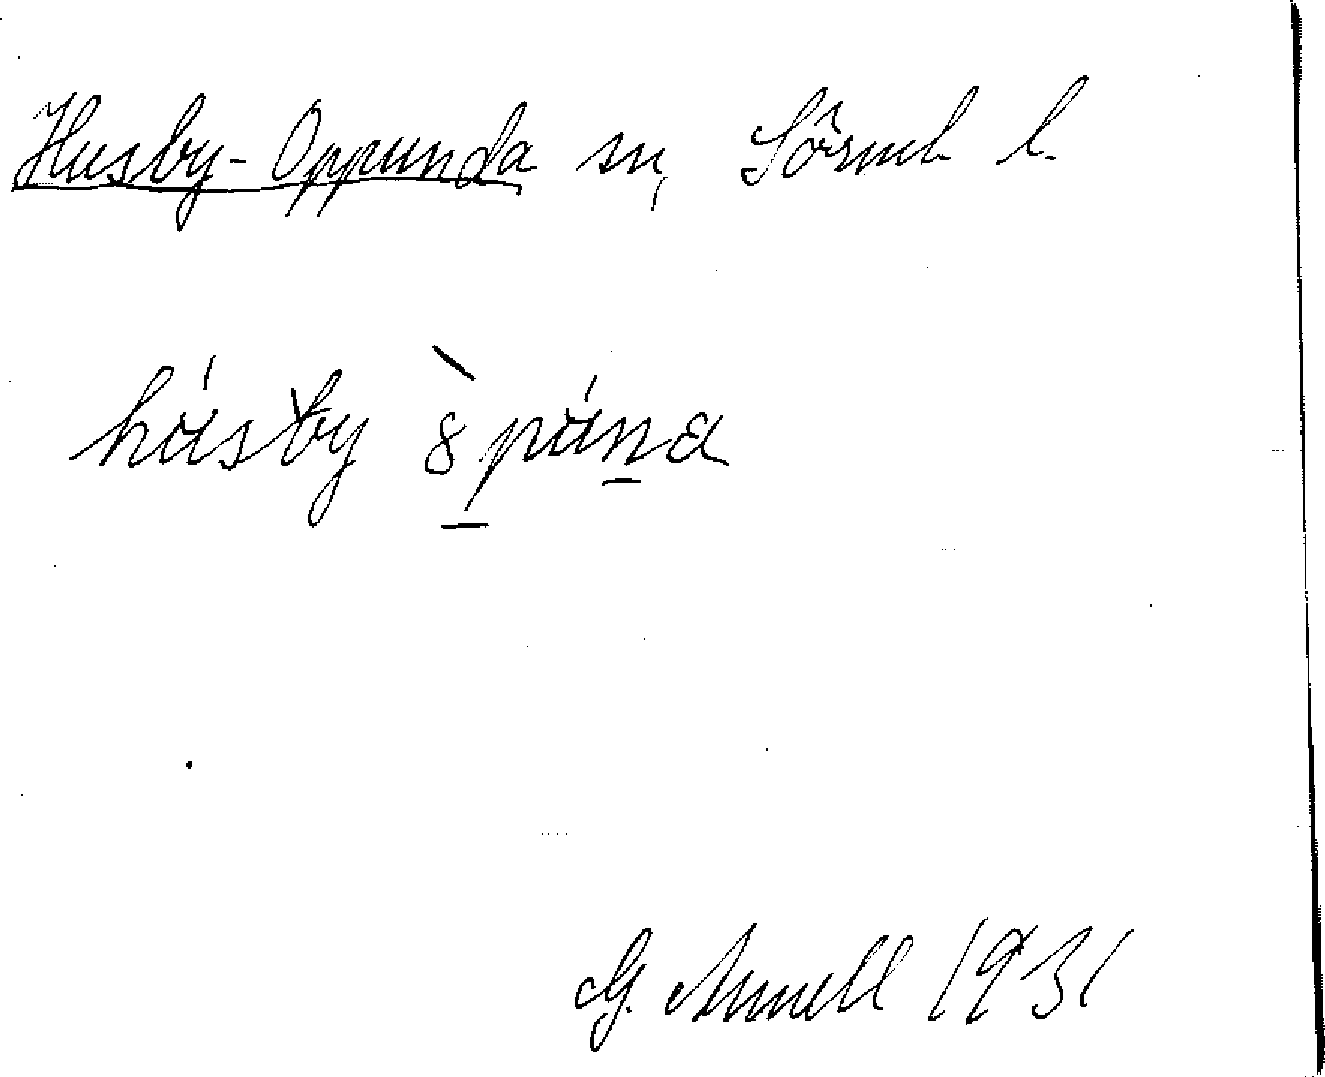 Husby-Oppunda sn, Sörml l.
húsby 8̀ púna
G. Annell 1931